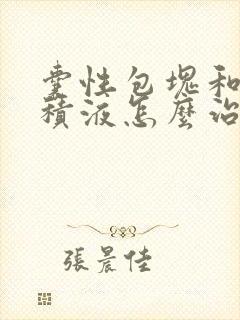 囊性包塊和
積液怎麼治
張晨佳